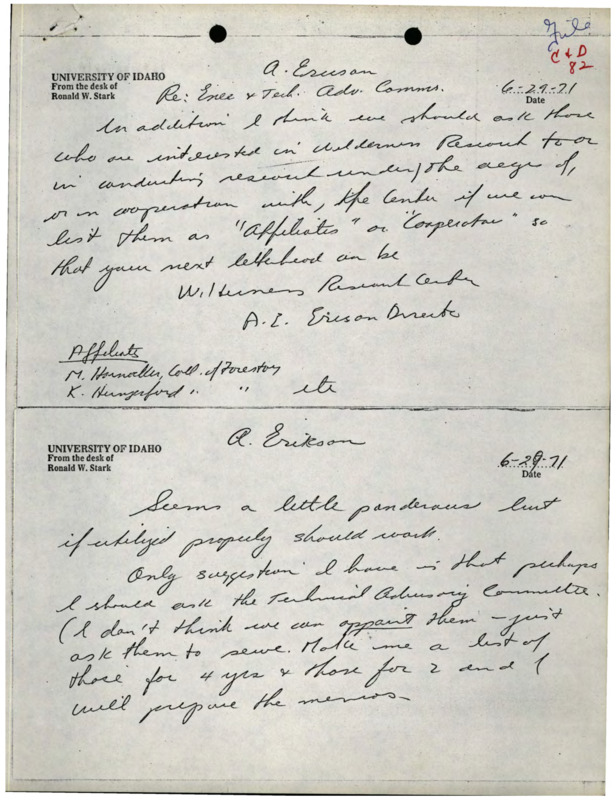 File
C & D
82
UNIVERSITY OF IDAHO
From the desk of
Ronald W. Stark
A. Ericson
Re: Exec & Tech. Adv. Comms.
6-29-71
Date
In addition I think we should ask those
who are interested in Wilderness Research to or
in conducting research under, the aegis of,
or in cooperation with, the Center if we can
list them as "Affiliates" or "Cooperator" so
that your next letterhead can be
Wilderness Research Center
A. E. Ericson Director
Affiliates
M. Hornocker, Coll. of Forestry
K. Hungerford " "
etc
UNIVERSITY OF IDAHO
From the desk of
Ronald W. Stark
A. Erikson
6-29-71
Date
Seems a little ponderous but
if utilized properly should work.
Only suggestion I have is that perhaps
I should ask the Technical Advisory Committee.
(I don't think we can appoint them - just
ask them to serve. Make me a list of
those for 4 yrs & those for 2 and I
will prepare the memos-